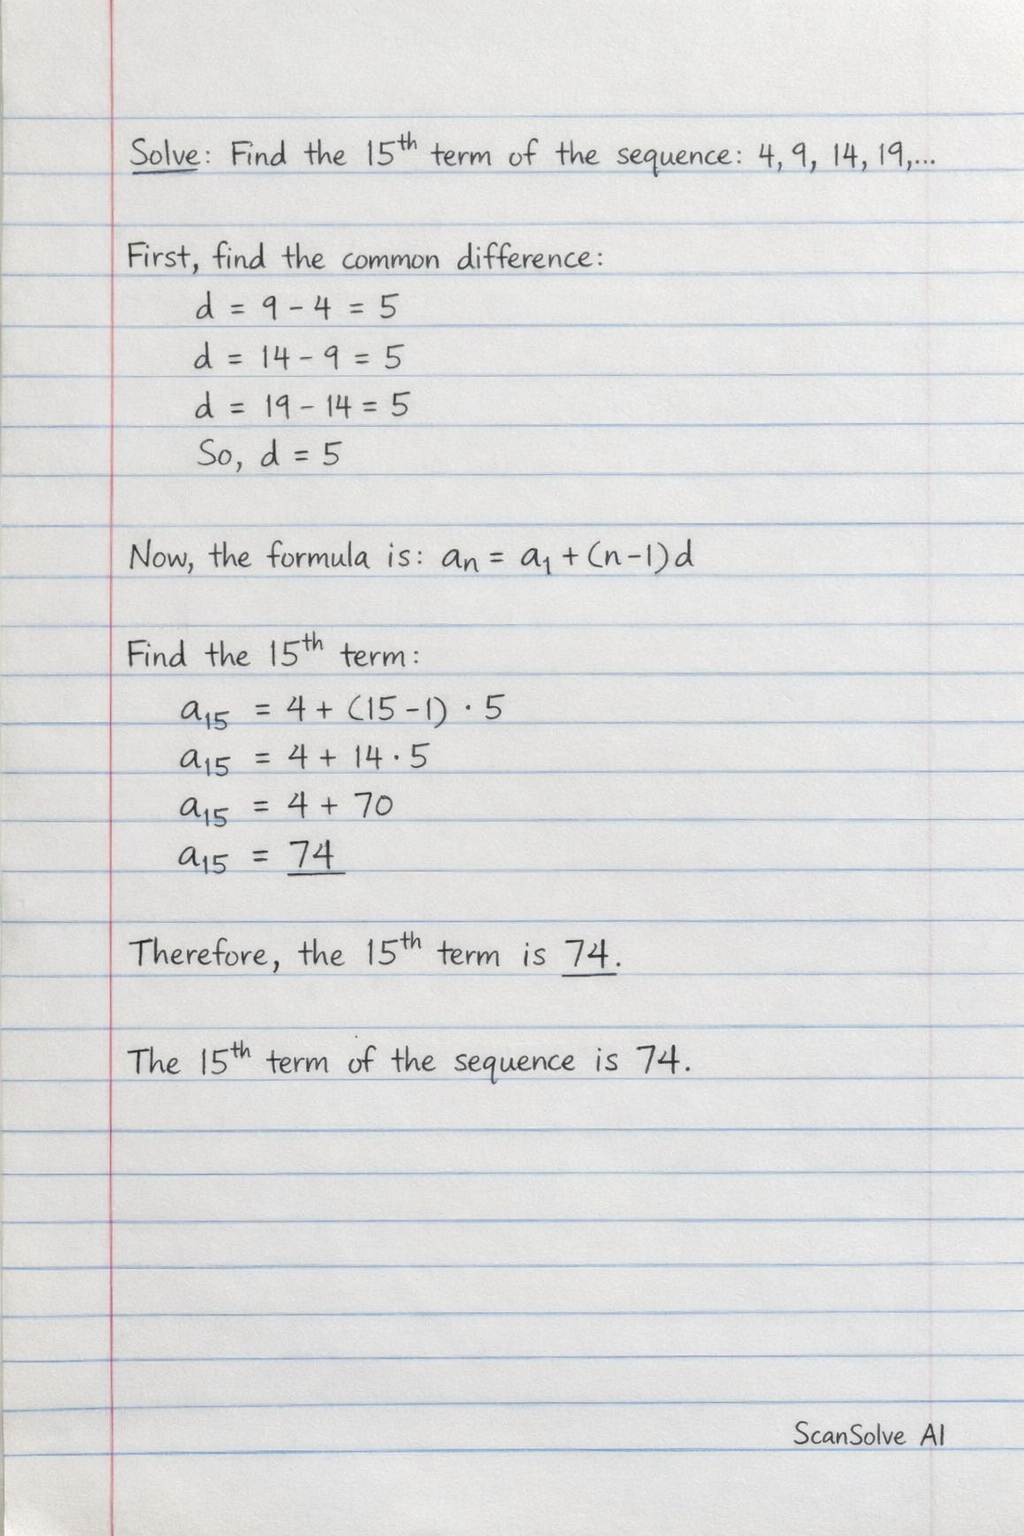 Solve: Find the 15th term of the sequence: 4, 9, 14, 19,...
First, find the common difference:
d = 9 - 4 = 5
d = 14 - 9 = 5
d = 19 - 14 = 5
So, d = 5
Now, the formula is: aₙ = a₁ + (n-1)d
Find the 15th term:
a₁₅ = 4 + (15-1) · 5
a₁₅ = 4 + 14 · 5
a₁₅ = 4 + 70
a₁₅ = 74
Therefore, the 15th term is 74.
The 15th term of the sequence is 74.
ScanSolve AI